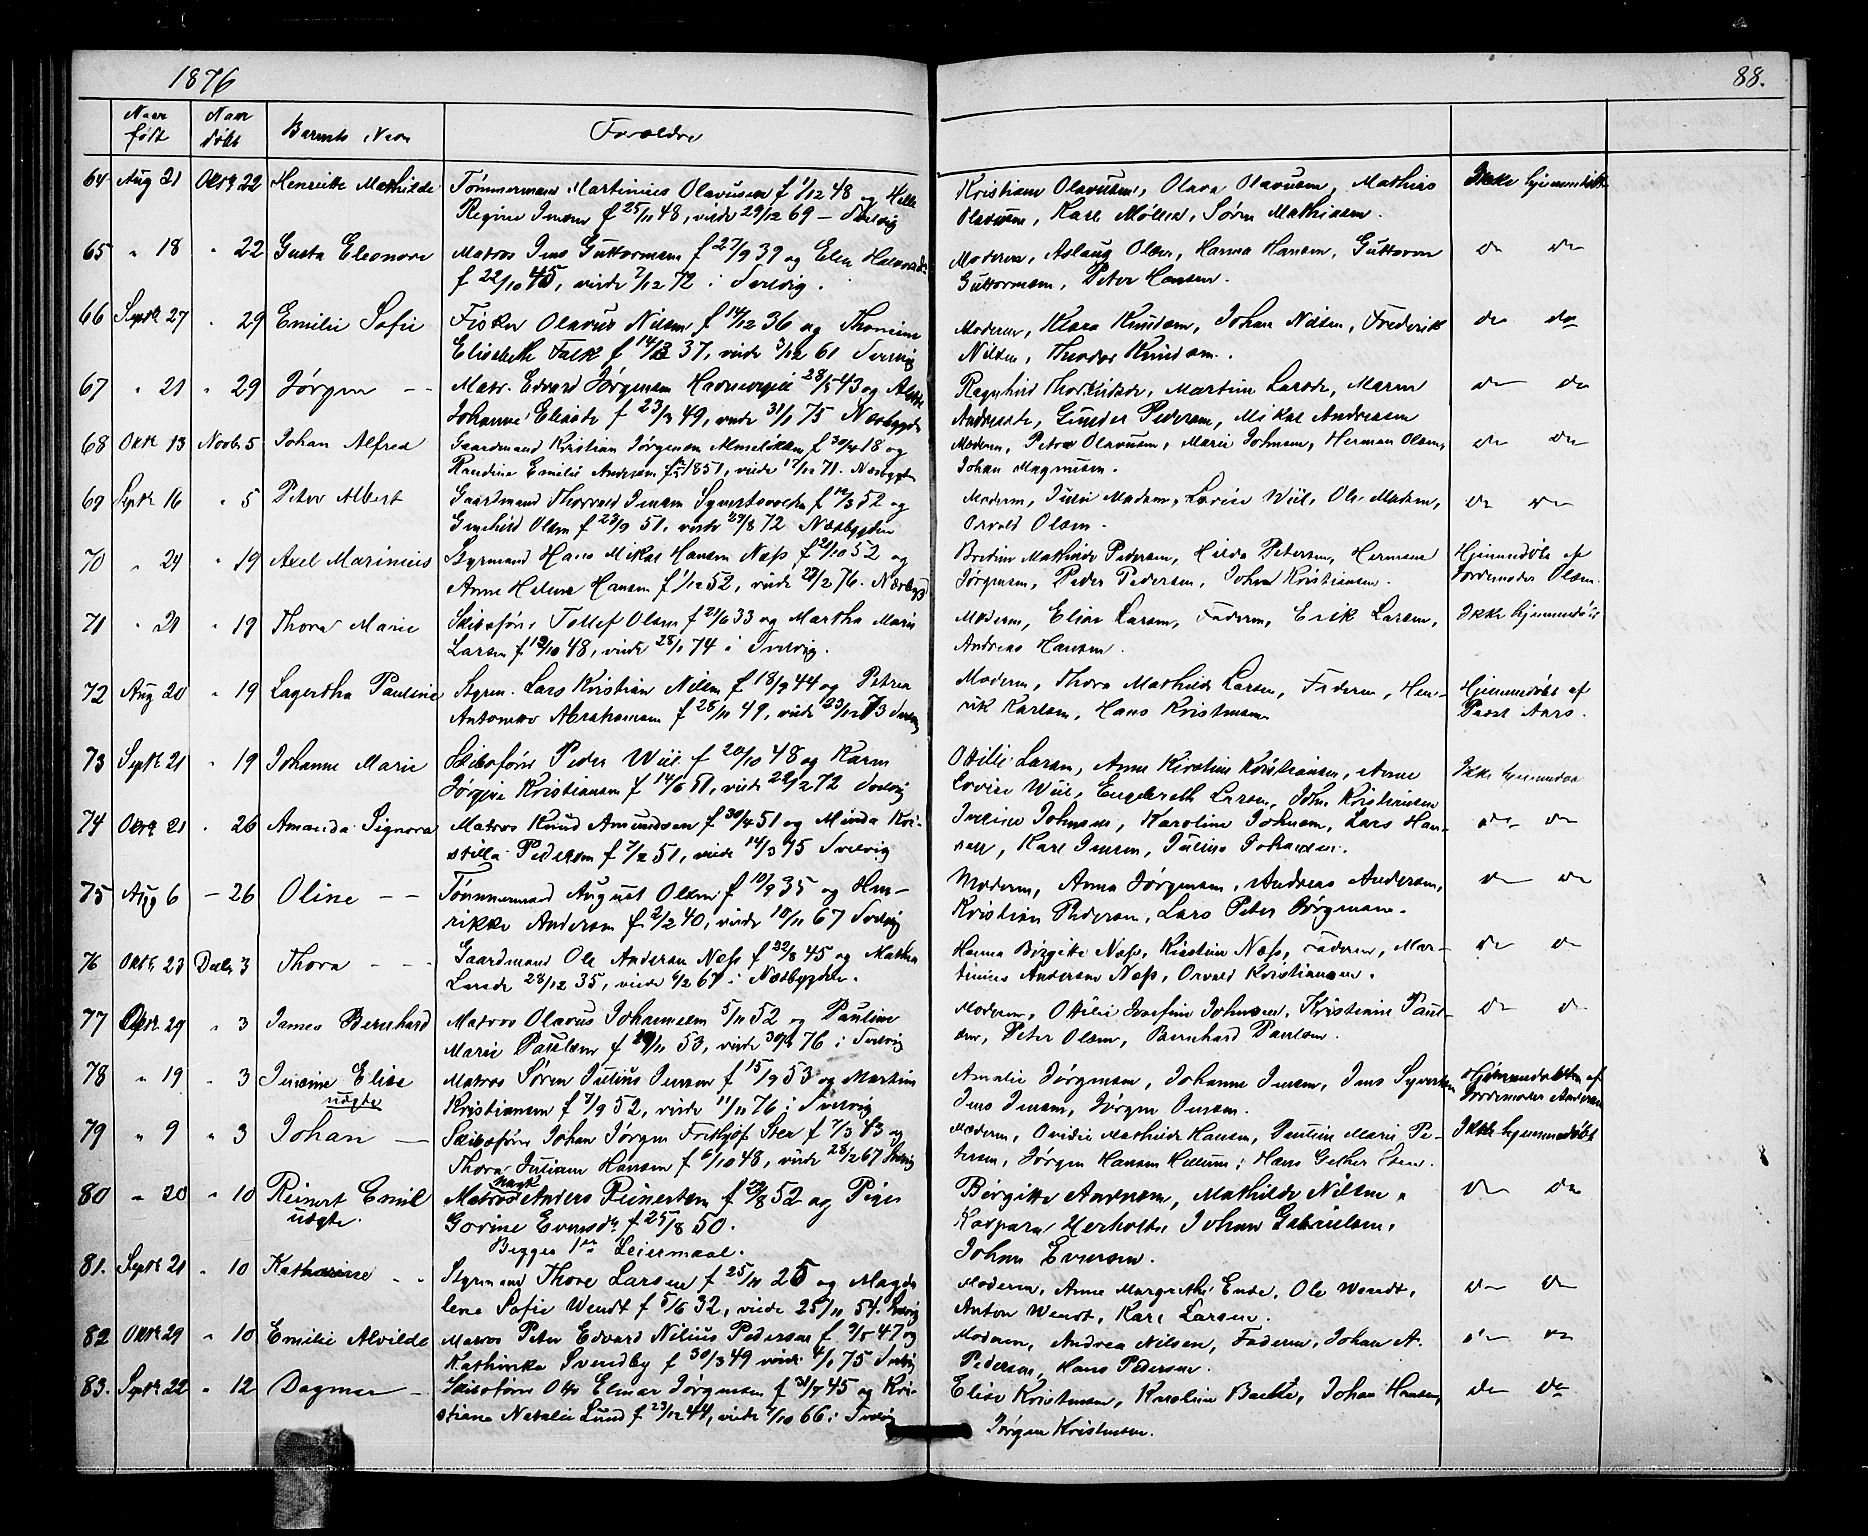 1876
88.
Naar født
Naar døbt
Barnets Navn
Forældre
64 Aug 21 Oktr 22 Henriette Mathilde Tømmermand Martinius Olavusen f 1/12 48 og Helle Kristiane Olavusen, Olava Olavusen, Mathias Ikke hjemmedøbt
Regine Jensen f 25/11 48, viede 29/12 69 – Svelvig Olavusen, Karl Møller, Søren Mathisen.
65 " 18 " 22 Gusta Eleonore Matros Jens Guttormsen f 27/9 39 og Elen Moderen, Aslaug Olsen, Hanna Hansen, Guttorm do do
f 22/10 45, viede 7/12 72 i Svelvig. Guttormsen, Peter Hansen.
66 Septr 27 " 29 Emilie Sofie Fisker Olavus Nilsen f 14/12 36 og Thomine Moderen, Klara Knudsen, Johan Nilsen, Frederik do do
Elisabeth Falk f 37, viede 3/12 61 Svelvig Nilsen, Theodor Knudsen.
67 " 21 " 29 Jørgen – – Matr. Edvard Jørgensen 28/5 43 og Ragnhild Thorkildsdr, Martine Larsdr, Maren do do
Johanne Eliasdr f 23/3 49, viede 31/1 75 Næsbygden Andreasdr, Gunder Pedersen, Mikal Andreasen
68 Oktr 13 Novbr 5 Johan Alfred Gaardmand Kristian Jørgensen f 30/4 18 og Moderen, Petra Olavusen, Marie Johnsen, Herman Olsen, do do
Randine Emilie Andersen 1851, viede 17/12 71. Næsbygden Johan Magnusen.
69 Septr 16 " 5 Peter Albert Gaardmand Thorvald Jensen f 52 og Moderen, Julie Madsen, Lovise Wiil, Ole Madsen, do do
Olsen f 23/9 51, viede 29/8 72 Næsbygden Osvald Olsen.
70 " 24 " 19 Axel Marinius Styrmand Hans Mikal Hansen Næss f 21/10 52 og Bredine Mathilde Pedersen, Hilda Petersen, Herman Hjemmedøbt af
Anne Helene Hansen f 1/12 52, viede 29/2 76. Næsbygd Jørgensen, Peder Pedersen, Johan Kristiansen. Jordemoder Olsen.
71 " 21 " 19 Thora Marie Skibsfører Tollef Olsen f 21/6 33 og Martha Marie Moderen, Elise Larsen, Faderen, Erik Larsen, Ikke hjemmedøbt
Larsen f 19/10 48, viede 28/1 74 i Svelvig. Andreas Hansen.
72 Aug 20 " 19 Lagertha Pauline Styrm. Lars Kristian Nilsen f 18/9 44 og Petrea Moderen, Thora Mathilde Larsen, Faderen, Hen- Hjemmedøbt af
Abrahamsen f 28/11 49, viede 23/12 73 Svelvig rik Karlsen, Hans Kristensen Præst Aars.
73 Septr 21 " 19 Johanne Marie Skibsfører Peder Wiil f 20/10 48 og Karen Ottilie Larsen, Anne Kirstine Kristiansen, Anne Ikke hjemmedøbt
Jørgine Kristiansen f 14/6 51, viede 22/2 72 Svelvig Lovise Wiil, Engebreth Larsen, John Kristiansen
74 Oktr 21 " 26 Amanda Signora Matros Knud Amundsen f 30/4 51 og Minda Kri- Jensine Johnsen, Karoline Johnsen, Lars Han- do do
stilla Pedersen f 7/2 51, viede 14/3 75 Svelvig sen, Karl Jensen, Julius Johansen.
75 Aug 6 – 26 Oline – – Tømmermand August Olsen f 10/9 35 og Hen- Moderen, Anna Jørgensen, Andreas Andersen, do do
rikke Andersen f 2/2 40, viede 10/11 67 Svelvig Kristian Pedersen, Lars Peter Jørgensen.
76 Oktr 23 Decbr 3 Thora – – Gaardmand Ole Andersen Næss f 22/8 45 og Mathea Hanna Birgitte Næss, Kirstine Næss, Faderen, Mar- do do
Larsdr 28/12 35, viede 6/2 67 i Næsbygden. tinius Andersen Næss, Osvald Kristiansen.
77 Oktr 29 " 3 James Bernhard Matros Olavus Johannesen 5/11 52 og Pauline Moderen, Ottilie Josefine Johnsen, Kristiane Paul- do do
Marie Paulsen f 53, viede 76 i Svelvig sen, Peter Olsen, Bernhard Paulsen.
78 " 19 " 3 Jensine Elise Matros Søren Julius Jensen f 15/9 53 og Martine Amalie Jørgensen, Johanne Jensen, Jens Syvertsen Hjemmedøbt af
uægte Kristiansen f 7/9 52, viede 11/11 76 i Svelvig Jens Jensen, Jørgen Jensen. Jordemoder Andersen
79 " 9 " 3 Johan – Skibsfører Johan Jørgen Frithjof f 7/3 43 og Moderen, Ovidie Mathilde Hansen, Pauline Marie Pe- Ikke hjemmedøbt
Thora Juliane Hansen f 6/10 48, viede 28/2 67 Svelvig tersen, Jørgen Hansen Hellum, Hans
80 " 20 " 10 Reinert Emil Matros Anders Reinertsen f 29/8 52 og Pige Birgitte Andersen, Mathilde Nilsen, do do
uægte. Gorine Evensdr f 25/8 50. Kaspara Herholdt, Johan Gabrielsen,
Begges 1ste Leiermaal. Johan Evensen.
81. Septr 21 " 10 Kathrine – – Styrmand Thore Larsen f 25/11 25 og Magda- Moderen, Anne Margrethe Ende, Ole Wendt, do do
lene Sofie Wendt f 5/6 32, viede 25/11 54. Svelvig Anton Wendt, Karl Larsen.
82 Oktr 29 " 10 Emilie Alvilde Matros Peter Edvard Nilius Pedersen f 9/5 47 og Moderen, Andrea Nilsen, Faderen, Johan A. do do
Kathinka Svendby f 30/3 49 viede 4/1 75 Svelvig Pedersen, Hans Pedersen.
83. Septr 22 " 12 Dagmar – Skibsfører Ole Elmar Jørgensen f 31/7 45 og Kri- Elise Kristensen, Karoline Bache, Johan Hansen, do do
stiane Natalie Lund f 23/12 44, viede 7/10 66 i Svelvig Jørgen Kristensen.